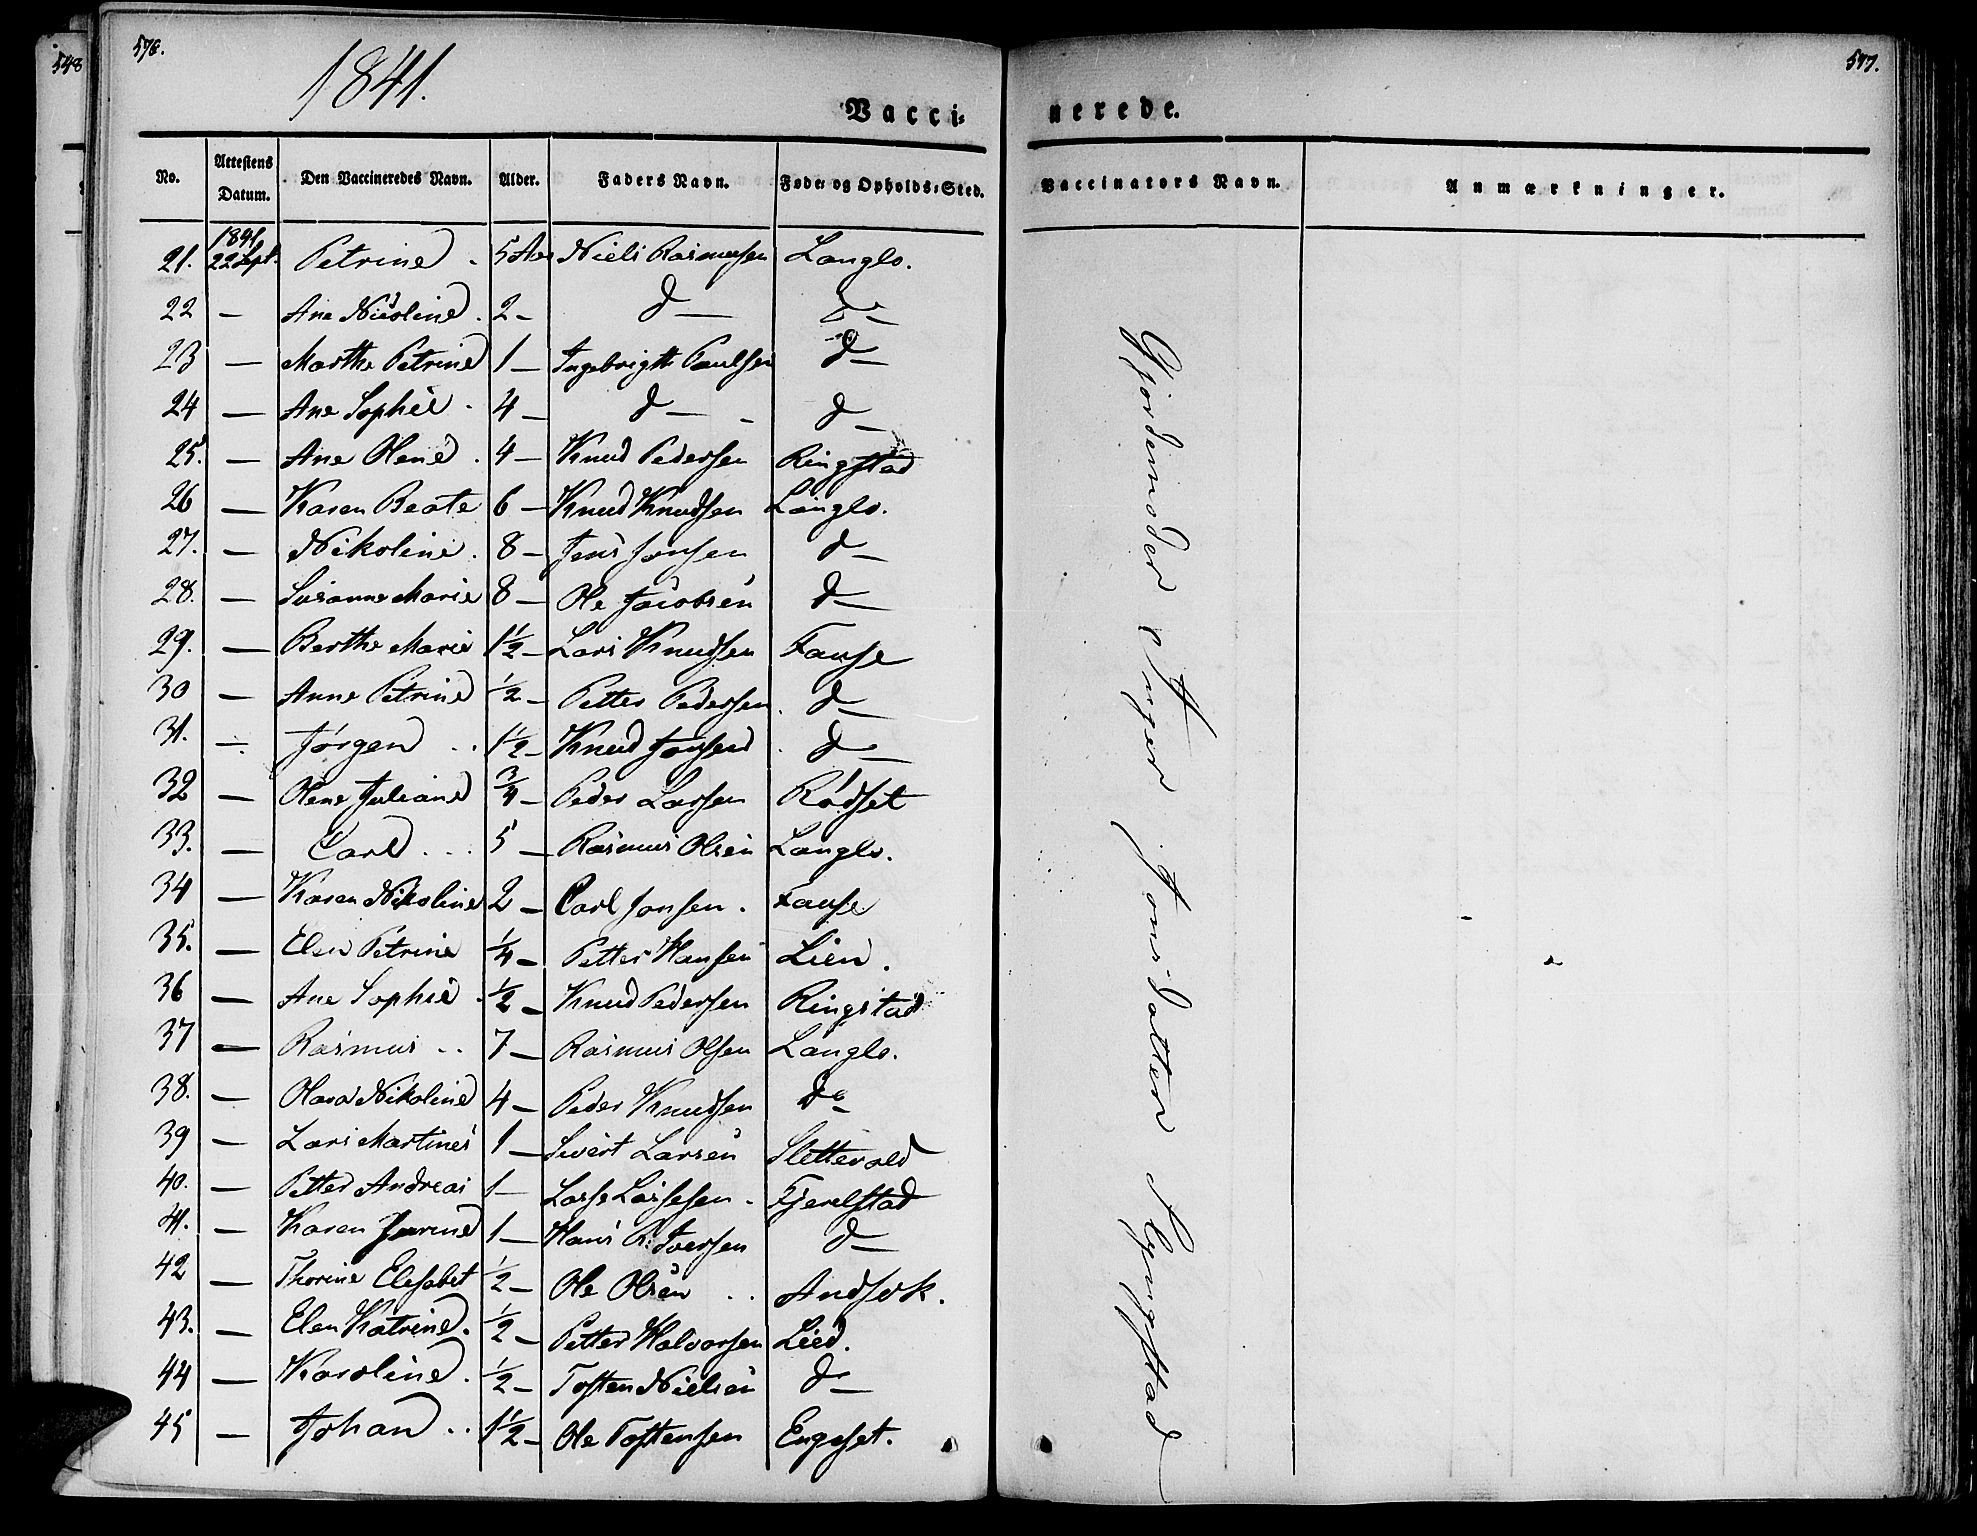 548
576.
1841.
577.
Vacci=
nerede.
No. Attestens Datum. Den Vaccineredes Navn. Alder. Faders Navn. Føde= og Opholds=Sted. Vaccinators Navn. Anmærkninger.
1841
21. 22 Sept. Petrine . 5 Aar Niels Rasmussen Langlo.
22 — Ane Nicoline . 2 — d — d —
23 — Marthe Petrine 1 — Ingebrigth Paulsen d —
24 — Ane Sophie . 4 — d — d —
25. — Ane Olene . 4 — Knud Pedersen Ringstad
26 — Karen Beate 6 — Knud Knudsen Langlo.
27. — Nikoline . 8 — Jens Jonsen d —
28. — Susanne Marie 8 — Ole Jacobsen d —
29. — Berthe Marie 1½ — Lars Knudsen Fause
30 — Anne Petrine ½ — Petter Pedersen . d —
31. — Jørgen . . 1½ — Knud Jonsen . d —
32 — Olene Juliane ¾ — Peder Larsen Rødset
33. — Carl . . . 5 — Rasmus Olsen Langlo.
34 — Karen Nikoline 2 — Carl Jonsen . Fause
35. — Elen Petrine ¼ — Petter Hansen Lien .
36 — Ane Sophie . ½ — Knud Pedersen Ringstad
37 — Rasmus . . 7 — Rasmus Olsen Langlo.
38. — Olava Nikoline 4 — Peder Knudsen do —
39 — Lars Martines 1 — Sivert Larsen Slettevold
40. — Petter Andreas 1 — Lasse Lassesen . Fjerelstad
41. — Karen 1 — Hans R. Iversen d —
42 — Thorine Elesabet ½ — Ole Olsen . . Andsok .
43. — Elen Katrine . ½ — Petter Halvorsen Lied.
44 — Karoline . ½ — Tosten Nielsen d —
45 — Johan . . 1½ — Ole Tostensen Engeset.
Gjordemoder Inger Jonsdatter